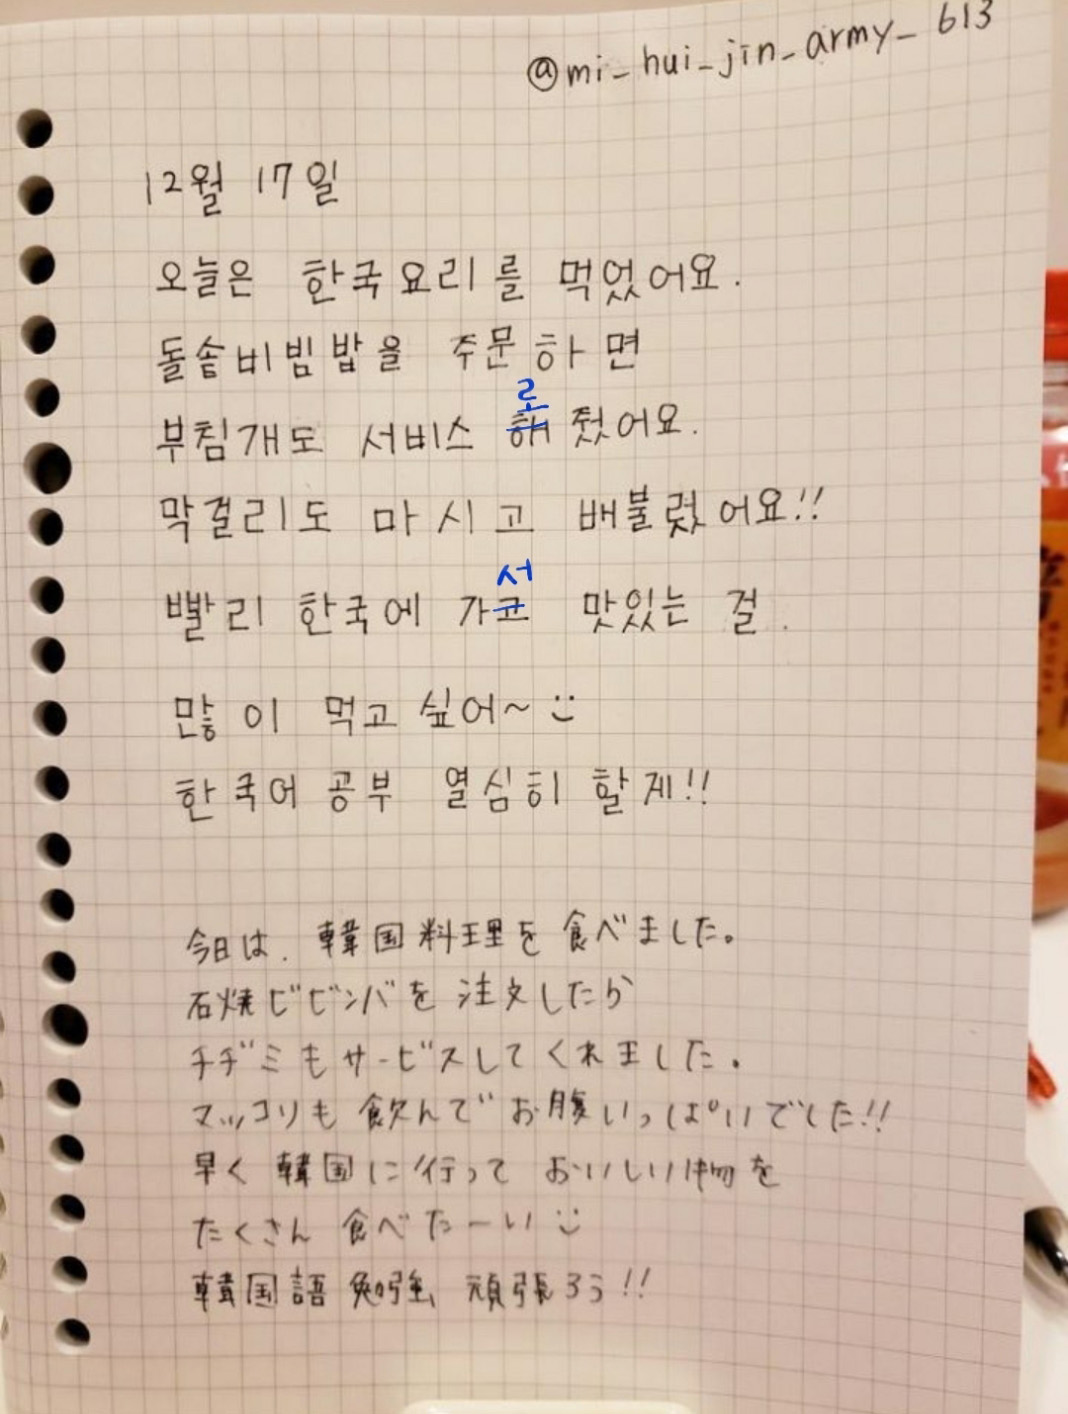 @mi_hui_jin_army_613
12월 17일
오늘은 한국요리를 먹었어요.
돌솥비빔밥을 주문하면
로
부침개도 서비스 해 줬어요.
막걸리도 마시고 배불렀어요!!
서
빨리 한국에 가고 맛있는 걸.
많이 먹고 싶어~
한국어 공부 열심히 할게!!
今日は、韓国料理を食べました。
石焼ビビンバを注文したら
チヂミもサービスしてくれました。
マッコリも飲んでお腹いっぱいでした!!
早く韓国に行っておいしい物を
たくさん食べたーい
韓国語勉強頑張ろう!!